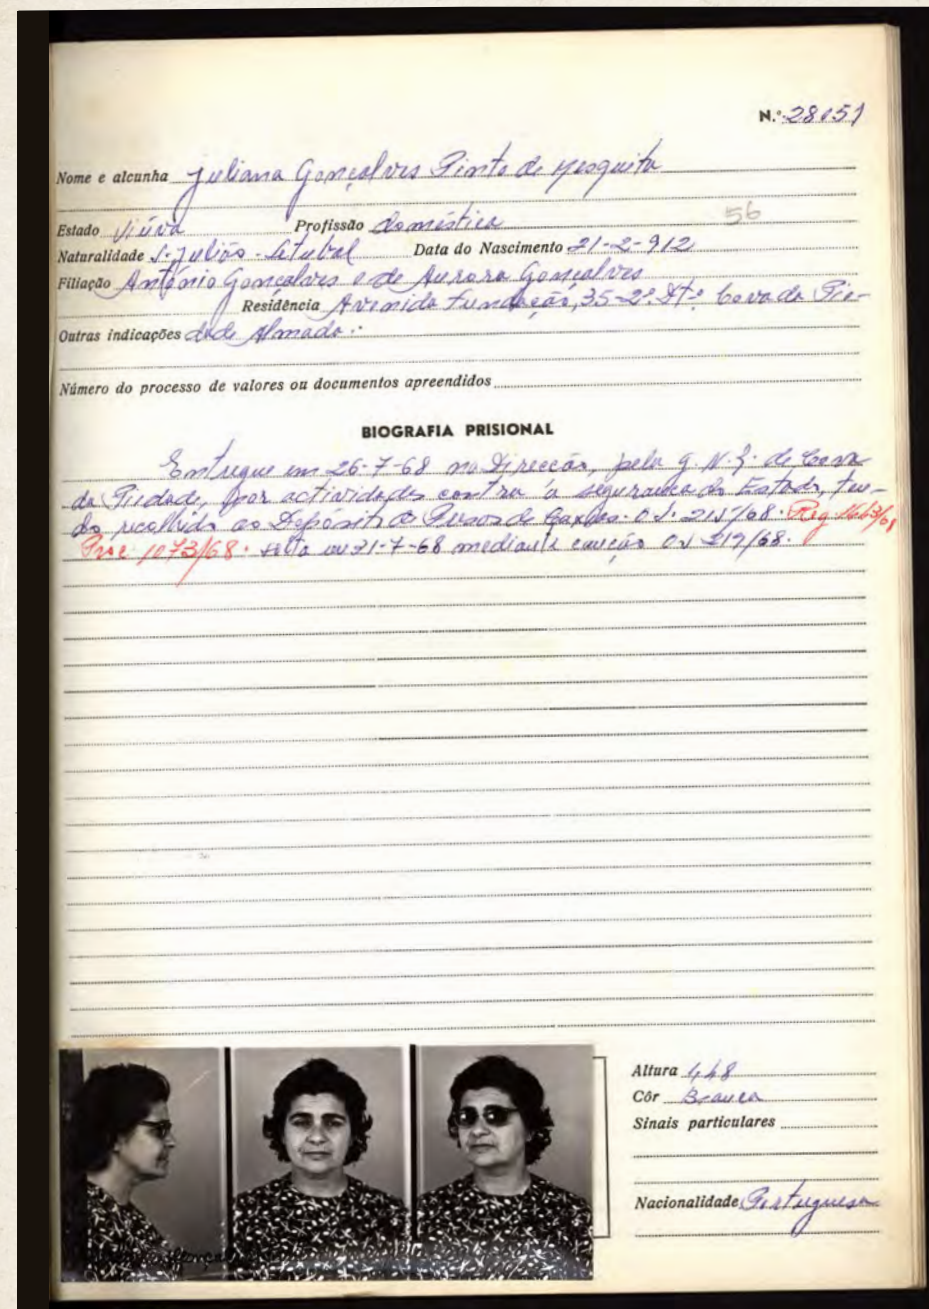 N.º 28151
Nome e alcunha Juliana Gonçalves Pinto de Mesquita
56
Estado Viúva Profissão doméstica
Naturalidade S. Julião - Setubal Data do Nascimento 21-2-912
Filiação António Gonçalves e de Aurora Gonçalves
Residência Avenida Fundação, 35-2º Dtº Cova da Pie-
Outras indicações dade Almada.
Número do processo de valores ou documentos apreendidos
BIOGRAFIA PRISIONAL
Entregue em 26-7-68 na Direcção, pela G. N. R. de Cova
da Piedade, por actividades contra a segurança do Estado, ten-
do recolhido ao Depósito de Presos de Caxias. O.S. 215/68. Reg
Proc 1073/68. solta em 31-7-68 mediante caução OS 219/68.
Altura 1,48
Côr Branca
Sinais particulares
Nacionalidade Portuguesa